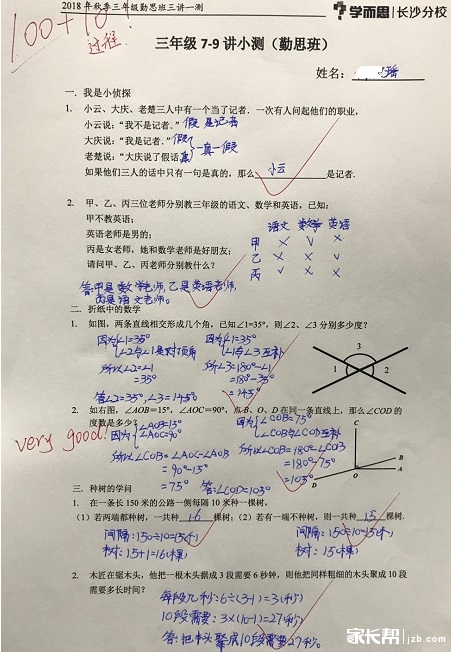 2018年秋季三年级勤思班三讲一测
学而思 长沙分校
100+10!
过程
三年级 7-9 讲小测（勤思班）
姓名：瑶
一. 我是小侦探
1. 小云、大庆、老楚三人中有一个当了记者. 一次有人问起他们的职业,
小云说：“我不是记者.” 假 是记者
大庆说：“我是记者.” 假
老楚说：“大庆说了假话.” 真 一真一假
如果他们三人的话中只有一句是真的，那么 小云 是记者.
2. 甲、乙、丙三位老师分别教三年级的语文、数学和英语，已知：
甲不教英语；
英语老师是男的；
丙是女老师，她和数学老师是好朋友；
请问甲、乙、丙老师分别教什么？
语文 数学 英语
甲 × √ ×
乙 × × √
丙 √ × ×
答:甲是数学老师,乙是英语老师,
丙是语文老师。
二. 折纸中的数学
1. 如图，两条直线相交形成几个角，已知∠1=35°，则∠2、∠3 分别多少度？
因为∠1=35°
∠2与∠1是对顶角
所以∠2=∠1
=35°
因为∠1=35°
∠1与∠3互补
所以∠3=180°-∠1
=180°-35°
=145°
答∠2=35°,∠3=145°
1 2 3
2. 如右图，∠AOB=15°，∠AOC=90°，点 B、O、D 在同一条直线上，那么∠COD 的
度数是多少？
very good!
因为∠AOB=15°
∠AOC=90°
所以∠COB=∠AOC-∠AOB
=90°-15°
=75°
因为∠COB=75°
∠COB与∠COD互补
所以∠COD=180°-∠COB
=180°-75°
=105°
答:∠COD=103°
C
B
A
O
D
三. 种树的学问
1. 在一条长 150 米的公路一侧每隔 10 米种一棵树，
（1）若两端都种树，一共种 16 棵树；（2）若有一端不种树，则一共种 15 棵树.
间隔:150÷10=15(个)
树:15+1=16(棵)
间隔:150÷10=15(个)
树:15(棵)
2. 木匠在锯木头，他把一根木头据成 3 段需要 6 秒钟，则他把同样粗细的木头聚成 10 段
需要多长时间？
每段几秒:6÷(3-1)=3(秒)
10段需要:3×(10-1)=27(秒)
答:把木头聚成10段需要27秒。
家长帮 jzb.com